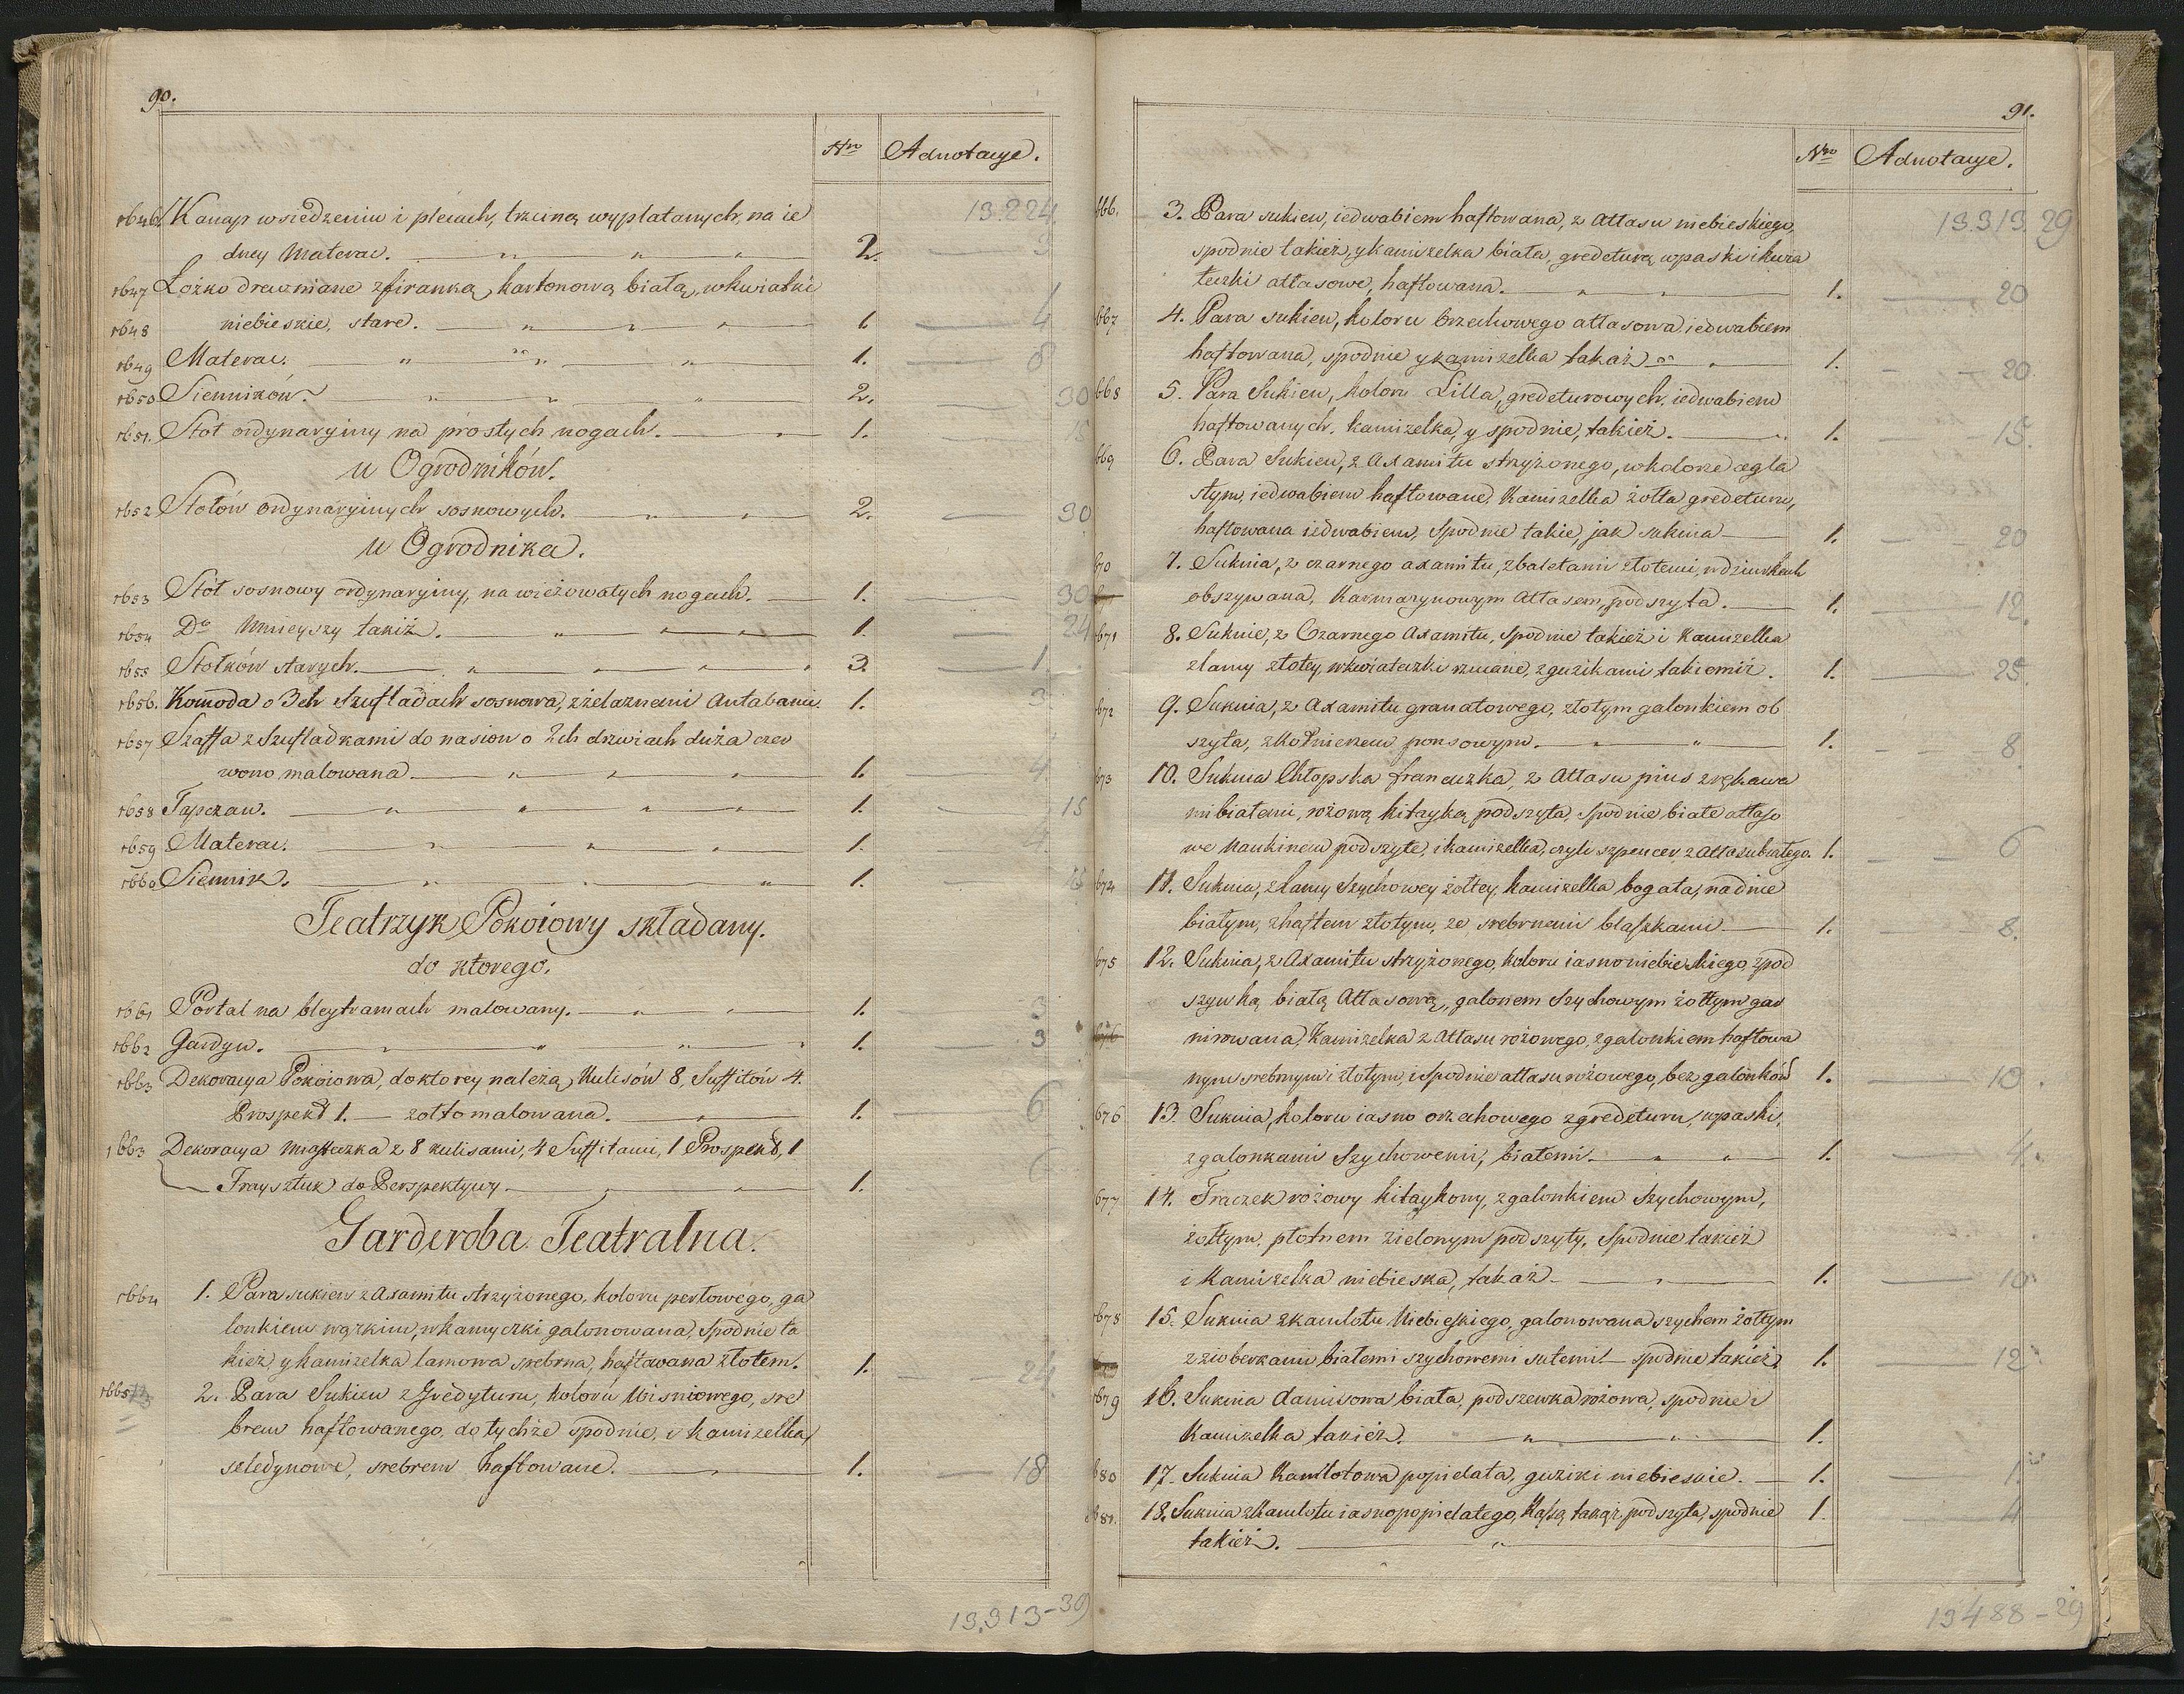 90.
Nro Adnotacye.
13.224
1646. Kanap w siedzeniu i plecach, trzciną wyplatanych, na ie
dney Materac. 2. 3
1647 Łożko drewniane z firanką, kartonową białą, w kwiatki
1648 niebieskie, stare. 1 4
1649 Materac. 1. 8
1650 Sienników. 2. 30
1651. Stoł ordynaryiny na prostych nogach. 1. 15
u Ogrodników.
1652 Stołów ordynaryinych sosnowych. 2. 30
u Ogrodnika.
1653 Stół sosnowy ordynaryiny, na wieżowatych nogach. 1. 30
1654 Do Mnieyszy takiż. 1. 24
1655 Stołków starych. 3. 1
1656. Komoda o 3ch Szufladach sosnowa, z żelaznemi Antabami 1. 3
1657 Szaffa z Szufladkami do nasion o 2ch drzwiach duża czer
wono malowana 1. 4
1658 Tapczan. 1. 15
1659 Materac. 1. 4.
1660 Siennik. 1. 15
Teatrzyk Pokoiowy składany.
do ktorego.
1661 Portal na bleytramach malowany. 1. 3
1662 Gardyn. 1. 3
1663 Dekoracya Pokoiowa, do ktorey należą, Kulisów 8, Suffitów 4.
Prospekt 1. — żołto malowana. 1. 6
1663 Dekoracya Miasteczka z 8 kulisami, 4 Suffitami, 1 Prospekt, 1
Traysztuk do Perspektywy. 1. 6
Garderoba Teatralna.
1664 1. Para sukien z Axamitu strzyżonego, koloru perłowego, ga
lonkiem wązkim, w kamyczki galonowana, Spodnie ta
kież, y kamizelka lamowa srebrna, haftowana złotem. 1. 24
1665 2. Para Sukien z Gredyturu, koloru Wisniowego, sre
brem haftowanego, do tychże spodnie, i kamizelka
seledynowe, srebrem haftowane. 1. 18
13,313-30
91.
Nro Adnotacye.
13.313.29
166. 3. Para sukien, iedwabiem haftowana, z Attasu niebieskiego,
spodnie takież, y kamizelka biała, gredeturą w paski i kwia
teczki attasowe, haftowana. 1. 20
667 4. Para sukien, koloru Orzechowego attasowa iedwabiem
haftowana, spodnie y kamizelka takaż 1. 20
668 5. Para Sukien, koloru Lilla, gredeturowych, iedwabiem
haftowanych, kamizelka, y spodnie, takież. 1. 15.
669 6. Para Sukien, z Axamitu strzyżonego, w kolorze cegla
stym, iedwabiem haftowane, Kamizelka żołta gredeturu,
haftowana iedwabiem, Spodnie takie, jak suknia 1. 20
670 7. Suknia, z czarnego axamitu, z baletami złotemi, w dziurkach
obszywana, Karmazynowym Attasem, podszyta. 1. 12.
671 8. Suknie, z Czarnego Axamitu, Spodnie takież i Kamizelka
z lamy złotey, w kwiateczki rzucane, z guzikami takiemiż. 1. 25.
672 9. Suknia, z Axamitu granatowego, złotym galonkiem ob
szyta, z kołnierzem ponsowym. 1. 8
673 10. Suknia Chłopska francuzka, z Attasu pius z rękawa
mi białemi, rożową kitayką podszyta, Spodnie białe attaso
we Nankinem podszyte, i kamizelka, czyli szpencer, z Attasu białego. 1. 6
674 11. Suknia, z lamy Szychowey żołtey, kamizelka bogata, na dnie
białym, z haftem złotym, ze srebrnemi blaszkami 1. 8.
675 12. Suknia, z Axamitu strzyżonego, koloru iasno niebieskiego z pod
szywką białą Attasową, galonem Szychowym żołtym gar
nirowana, Kamizelka z Attasu rożowego, z galonkiem haftowa
nym srebrnym i złotym, i Spodnie attasu rożowego, bez galonków 1. 10.
676 13 Suknia, koloru iasno orzechowego z gredeturu, w paski,
z galonkami Szychowemi, białemi. 1. 4.
677 14. Fraczek rożowy kitaykowy, z galonkiem Szychowym,
żołtym, płotnem zielonym podszyty, Spodnie takież
i Kamizelka niebieska, takaż 1. 10
678 15. Suknia z kamlotu Niebieskiego, galonowana szychem żołtym
z zioberkami, białemi szychowemi sutemi. — spodnie takież 1. 12
679 16. Suknia damisowa biała, podszewka rożowa, spodnie i
Kamizelka takież. 1.
680 17. Suknia Kamlotowa popielata, guziki niebieskie. 1. 1
681. 18. Suknia z kamlotu iasno popielatego, Kasą takąż podszyta, spodnie 1. 4
takież.
13488-29